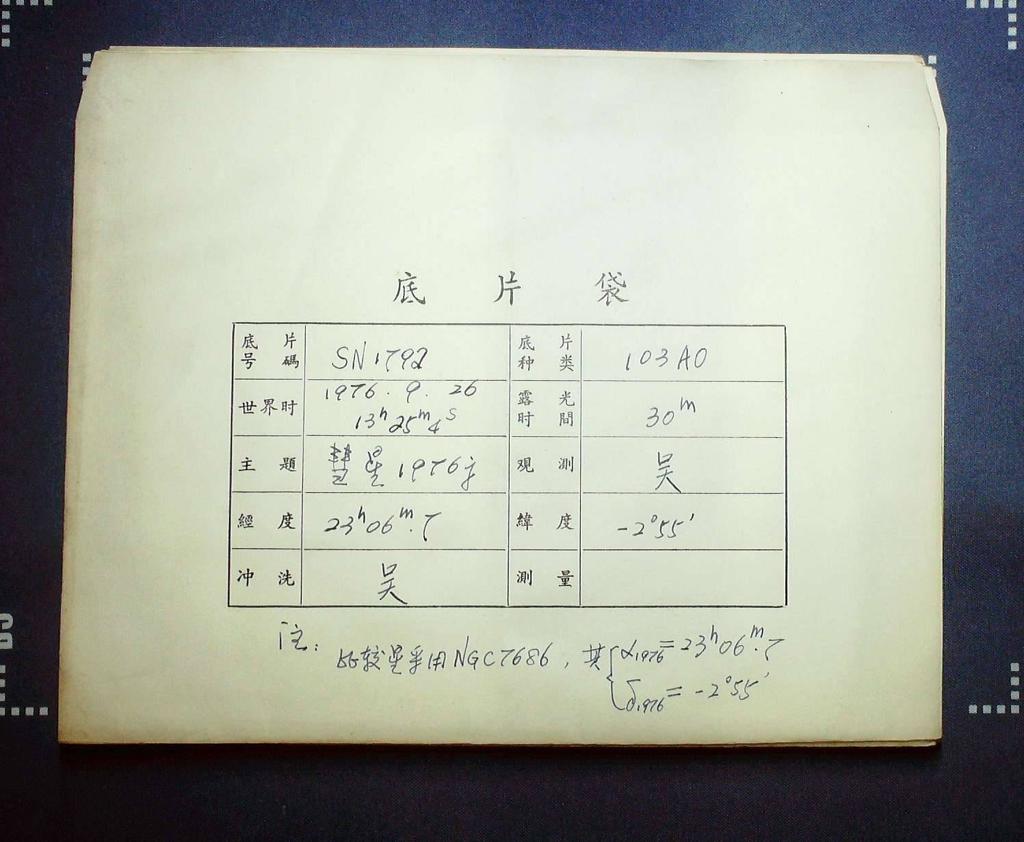 底片袋
底片号碼 SN1792 底片种类 103AO
世界时 1976.9.26 13h25m4s 露光时間 30m
主題 彗星1976 观測 吴
經度 23h06m.7 緯度 -2°55'
冲洗 吴 測量
注:
比较星采用NGC7686,其 α1976=23h06m.7
δ1976=-2°55'